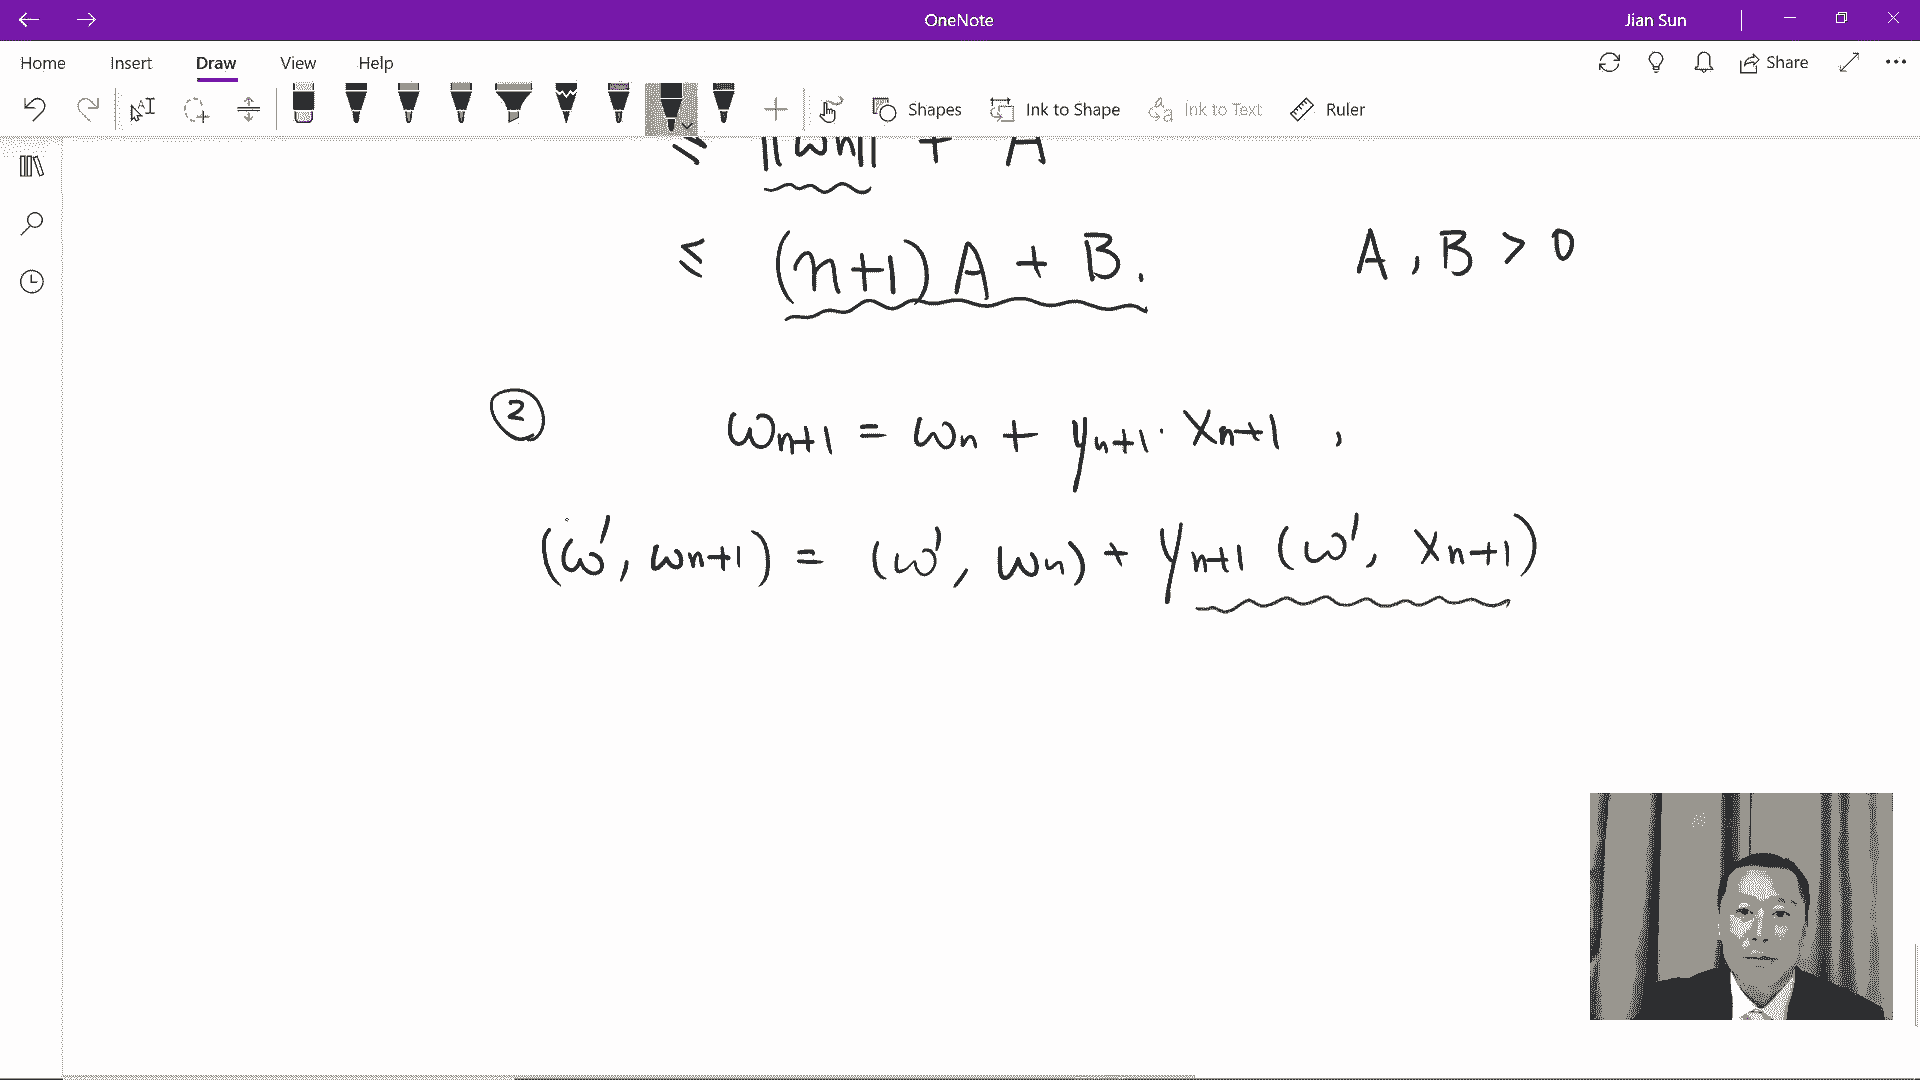 OneNote
Jian Sun
Home Insert Draw View Help
Share
Shapes Ink to Shape Ink to Text Ruler
≤ ||ωn|| + A
≤ (n+1) A + B. A, B > 0
② ωn+1 = ωn + yn+1 · xn+1 ,
(ω′, ωn+1) = (ω′, ωn) + yn+1 (ω′, xn+1)